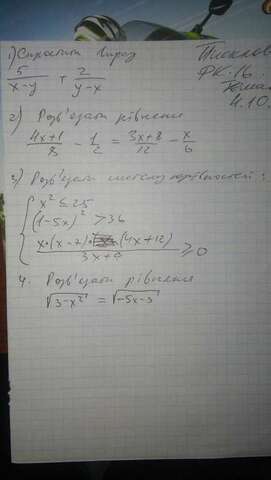 1) Спростити вираз
5/(x-y) + 2/(y-x)
ФК-16
4.10
2) Розв'язати рівняння
(4x+1)/8 - 1/2 = (3x+8)/12 - x/6
3) Розв'язати систему нерівностей:
x² ≤ 25
(1-5x)² > 36
4. Розв'язати рівняння
√(3-x²) = √(-5x-3)